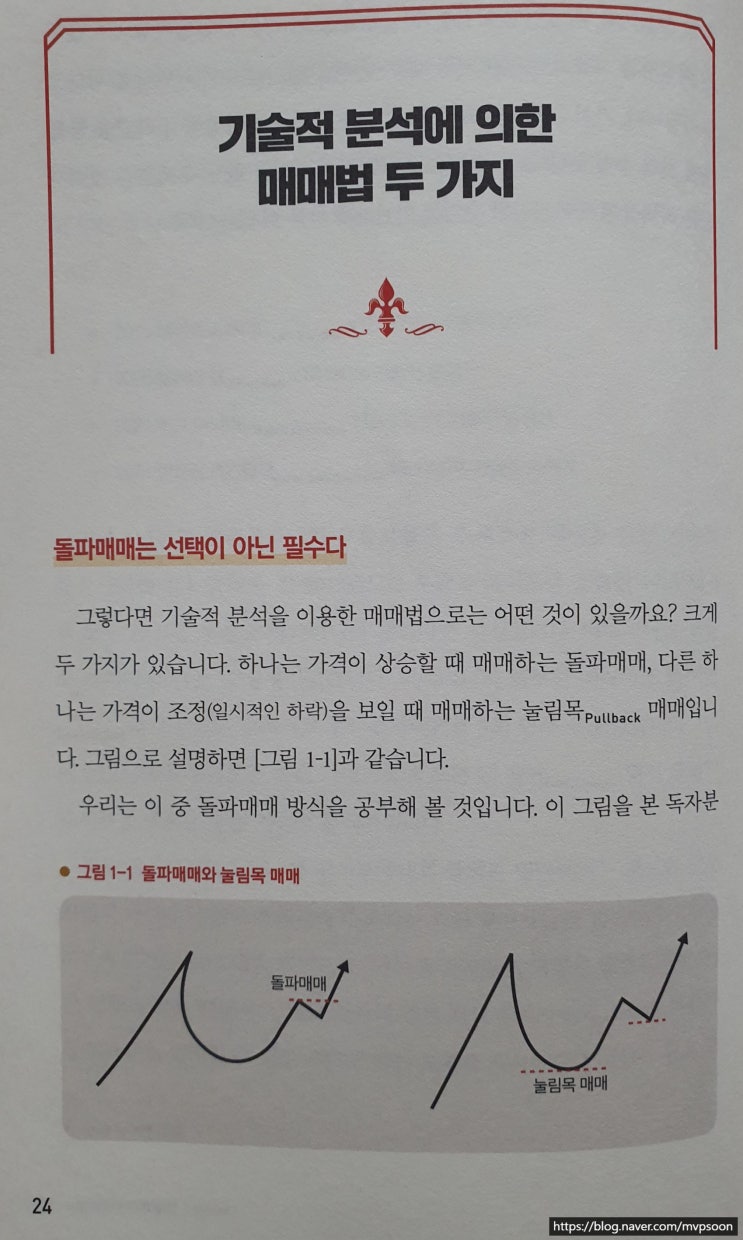 기술적 분석에 의한
매매법 두 가지
돌파매매는 선택이 아닌 필수다
그렇다면 기술적 분석을 이용한 매매법으로는 어떤 것이 있을까요? 크게
두 가지가 있습니다. 하나는 가격이 상승할 때 매매하는 돌파매매, 다른 하
나는 가격이 조정(일시적인 하락)을 보일 때 매매하는 눌림목Pullback 매매입니
다. 그림으로 설명하면 [그림 1-1]과 같습니다.
우리는 이 중 돌파매매 방식을 공부해 볼 것입니다. 이 그림을 본 독자분
● 그림 1-1 돌파매매와 눌림목 매매
돌파매매
눌림목 매매
24
https://blog.naver.com/mvpsoon